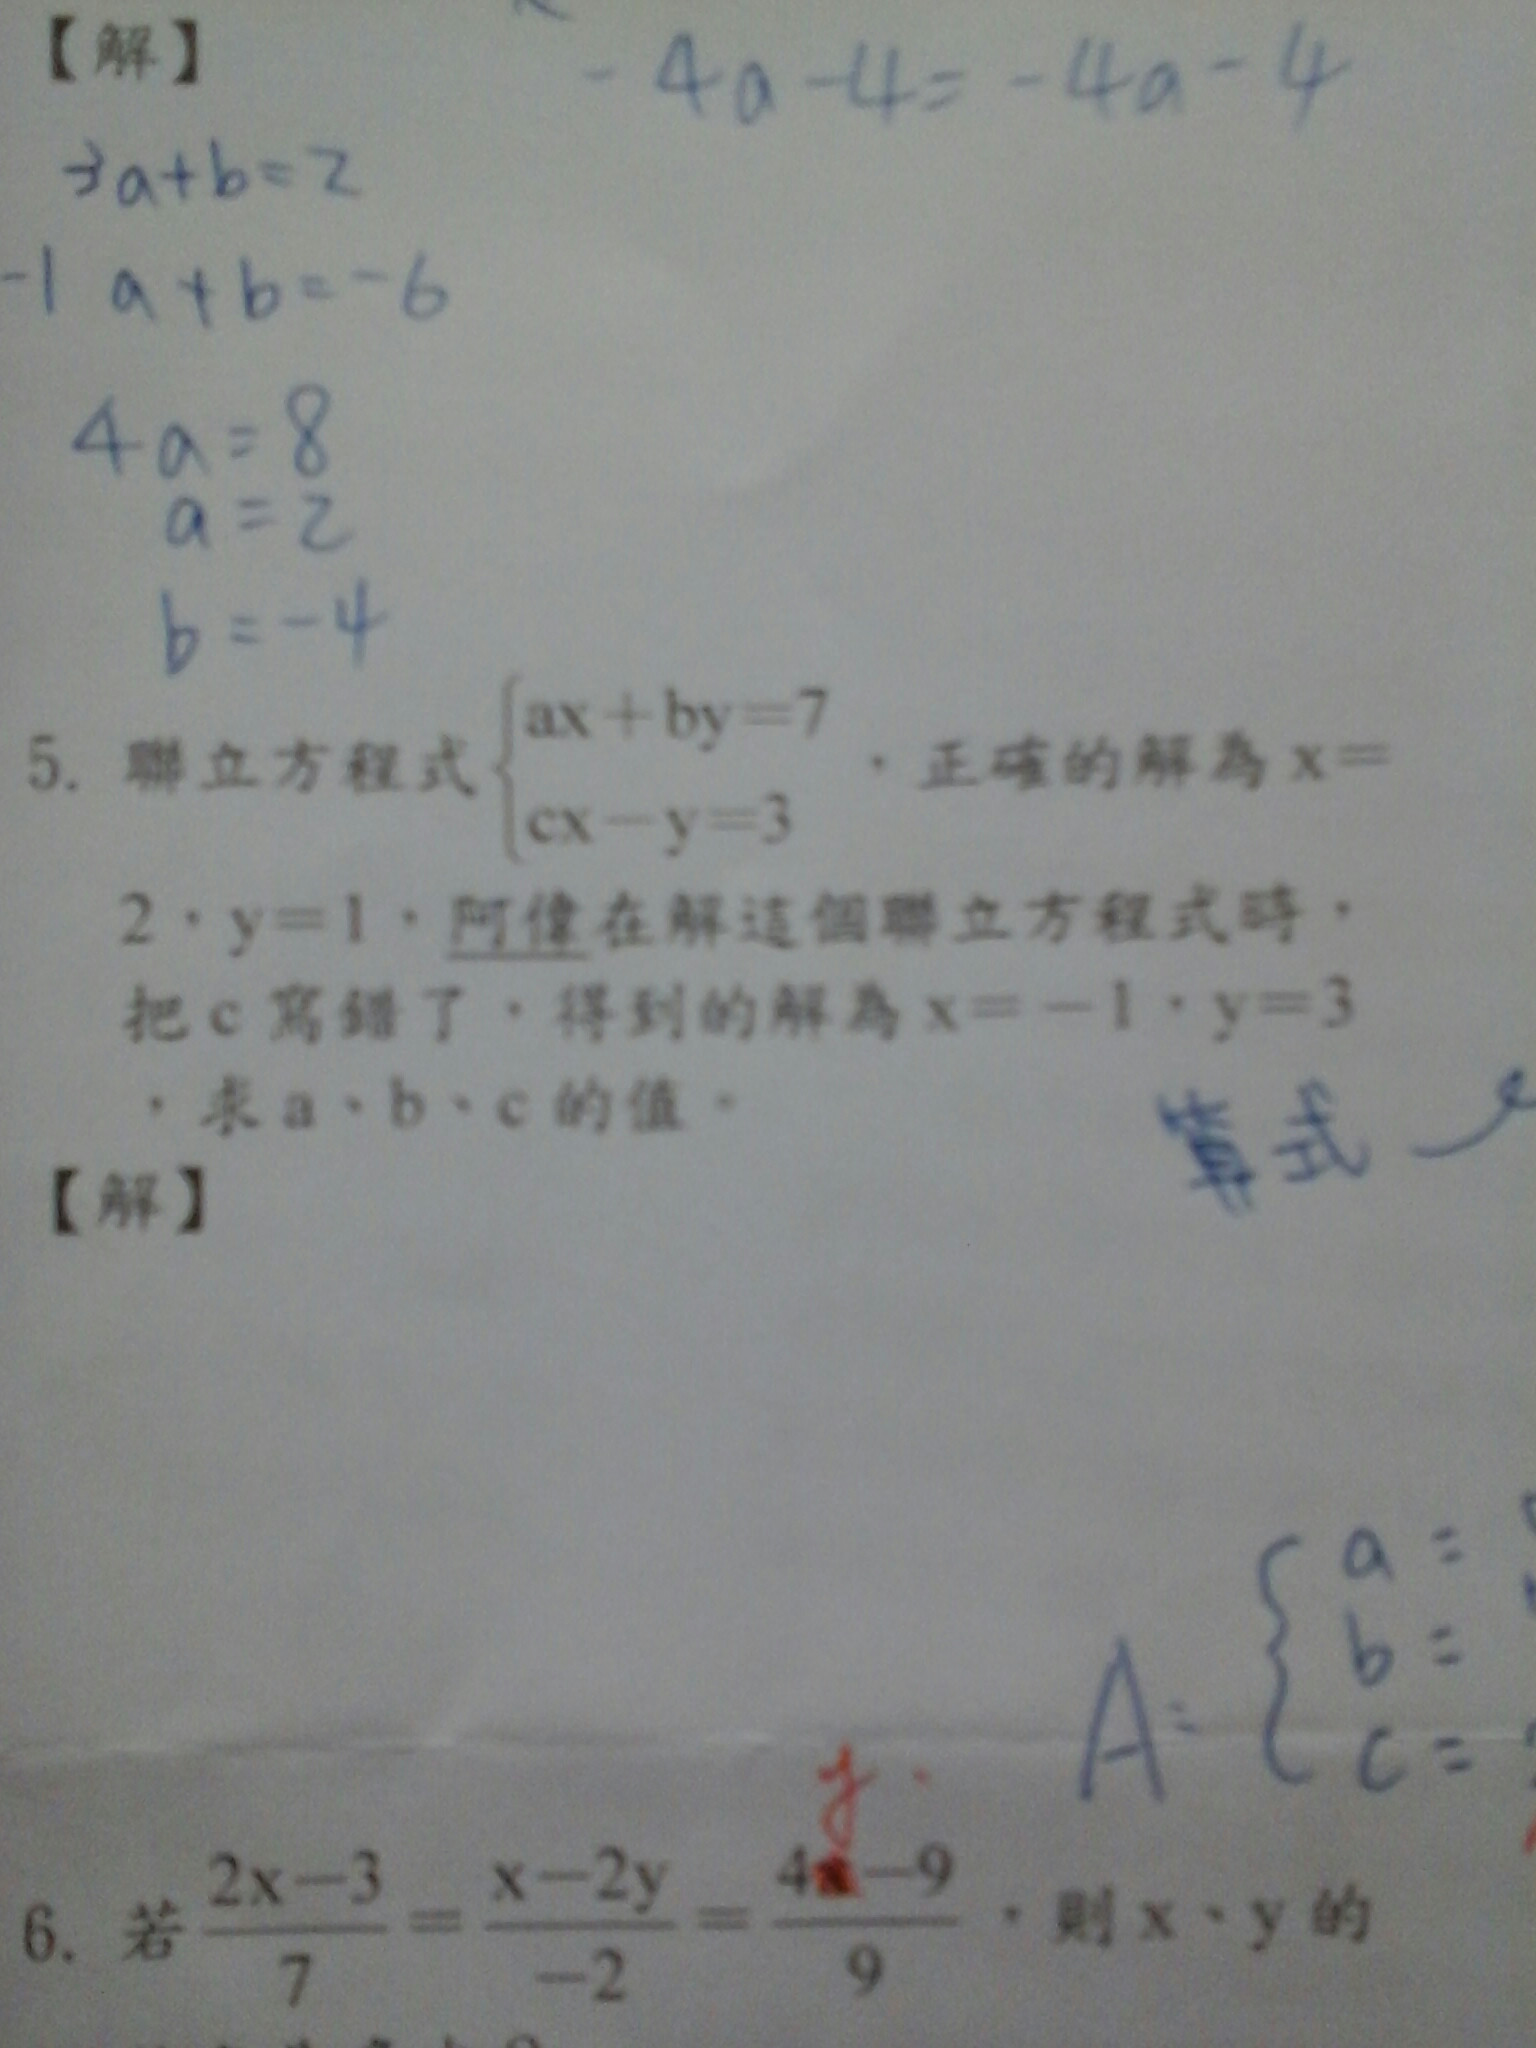 【解】
-4a-4=-4a-4
3a+b=2
-1 a+b=-6
4a=8
a=2
b=-4
5. 聯立方程式 { ax+by=7
cx-y=3 ,正確的解為 x=
2,y=1,阿偉在解這個聯立方程式時,
把 c 寫錯了,得到的解為 x=-1,y=3
,求 a、b、c 的值。
算式
【解】
A= { a=
b=
c=
y
6. 若 2x-3/7 = x-2y/-2 = 4x-9/9 ,則 x、y 的